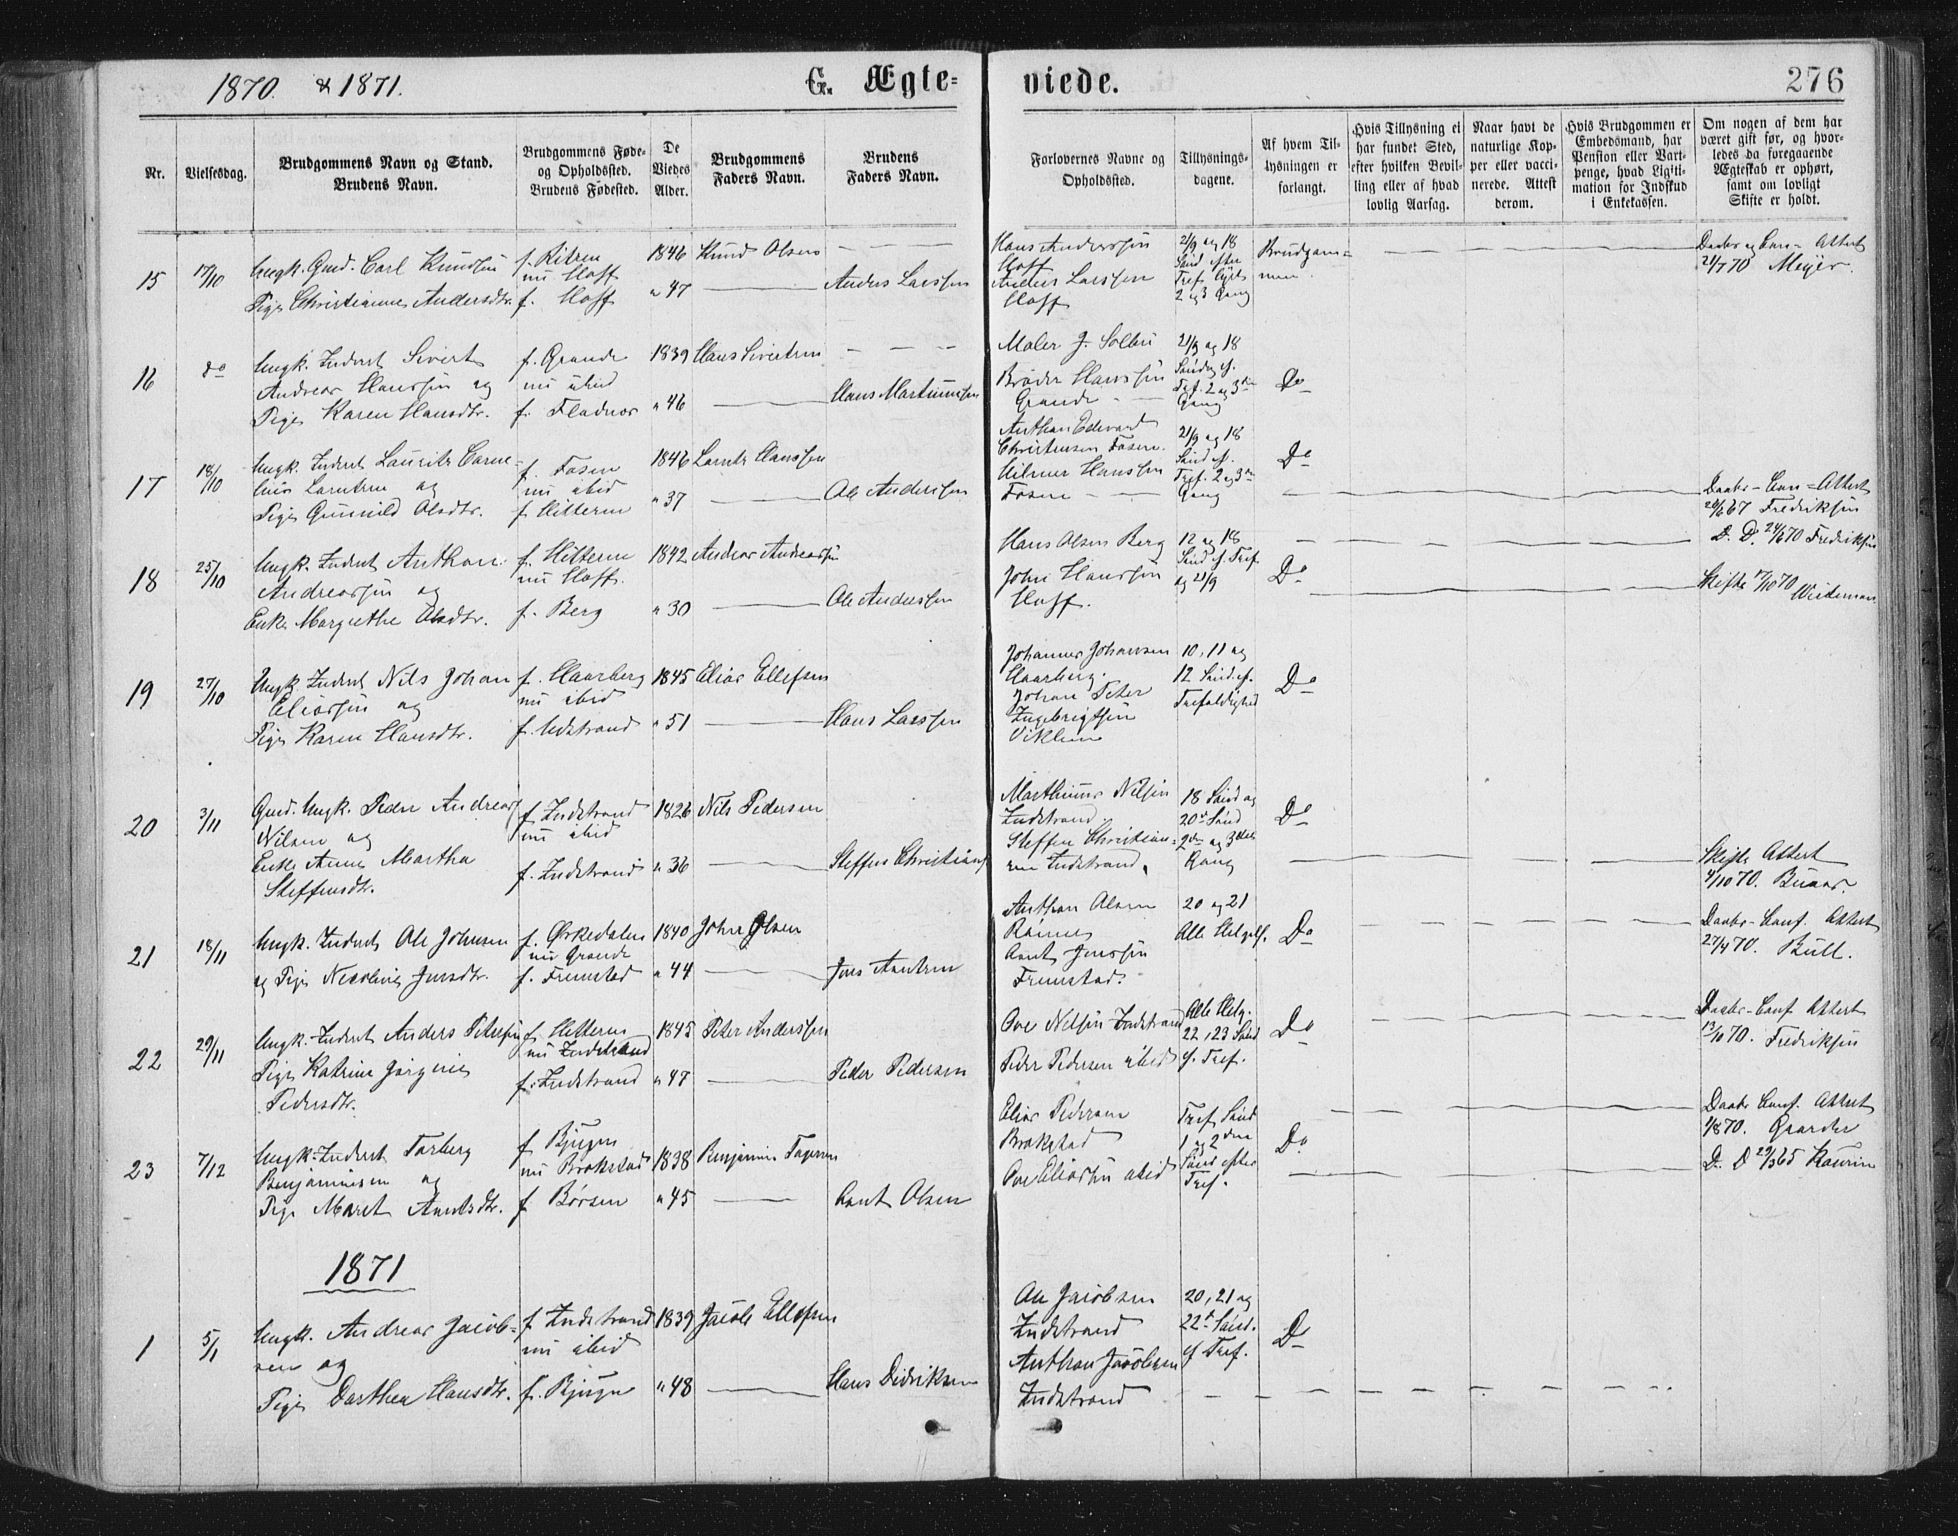 1870. & 1871.
G. Ægte=
viede.
276
Nr.
Vielsesdag.
Brudgommens Navn og Stand.
Brudens Navn.
Brudgommens Føde-
og Opholdssted.
Brudens Fødested.
De
Viedes
Alder.
Brudgommens
Faders Navn.
Brudens
Faders Navn.
Forlovernes Navne og
Opholdssted.
Tillysnings-
dagene.
Af hvem Til-
lysningen er
forlangt.
Hvis Tillysning ei
har fundet Sted,
efter hvilken Bevil-
ling eller af hvad
lovlig Aarsag.
Naar havt de
naturlige Kop-
per eller vacci-
nerede. Attest
derom.
Hvis Brudgommen er
Embedsmand, har
Pension eller Vart-
penge, hvad Ligiti-
mation for Indskud
i Enkekassen.
Om nogen af dem har
været gift før, og hvor-
ledes da foregaaende
Ægteskab er ophørt,
samt om lovligt
Skifte er holdt.
15 17/10
Ungk. Gmd. Carl Knudsen
Pige Christianne Andersdtr.
nu Hoff
f. Hoff
1846
" 47
Knud Olsen
Anders Larssen
Hans Anderssen
Hoff
Anders Larssen
Hoff
21/9 og 18
Sønd efter
Tref.
2 og 3 Gang
Brudgom=
men
Daabs og Con= Attest
21/7 70 Meyer.
16 do
Ungk. Inderst Sivert
Andreas Hanssen og
Pige Karen Hansdtr.
f. Grande
nu ibid
f. Fladnes
1839
" 46
Hans Sivertsen
Hans Martinussen
Maler J. Solbu
Brøder Hanssen
Grande
21/9 og 18
Søndag ef.
Tref. 2 og 3die
Gang
Do
17 18/10
Ungk. Inderst Laurits Corne-
lius Larntsen og
Pige Gunnild Olsdtr.
f. Fosen
nu ibid
f. Hitteren
1846
" 37
Larnts Hanssen
Ole Anderssen
Anthon Edevard
Christensen Fosen.
Hilmer Hanssen
Fosen
21/9 og 18
Sønd ef.
Tref. 2 og 3die
Gang
Do
Daabs- Con= Attest
26/6 67 Fredriksen
D. D. 24/6 70 Fredriksen
18 25/10
Ungk. Inderst Anthon
Andreassen og
Enke Margrethe Olsdtr.
f. Hitteren
nu Hoff.
f. Berg
1842
" 30
Andreas Andreassen
Ole Anderssen
Hans Olsen Berg
John Hanssen
Hoff.
12 og 18
Sønd ef. Tref.
og 21/9
Do
Skifte 17/10 70
Weideman
19 27/10
Ungk. Inderst Nils Johan
Eliassen og
Pige Karen Hansdtr.
f. Haarberg
nu ibid
f. Udstrand
1845
" 51
Elias Ellefsen
Hans Larssen
Johannes Johansen
Haarberg.
Johan Peter
Ingebrigtsen
Viklem
10, 11 og
12 Sønd. ef.
Trefoldighed
Do
20 3/11
Gmd. Ungk. Peder Andreas
Nilsen og
Enke Anne Martha
Steffensdtr.
f. Indstrand
nu ibid
f. Indstrand
1826
" 36
Nils Pedersen
Steffen Christians
Marthinus Nilsen
Indstrand.
Steffen Christian=
sen Indstrand.
18 Sønd og
20de Sønd
2den og 3die
Gang
Do
Skifte Attest
4/10 70. Buaas.
21 18/11
Ungk. Inderst Ole Johnsen
og Pige Nicoline Jensdtr.
f. Ørkedalen
nu Grande
f. Fremstad
1840
" 44
John Olsen
Jens Arntsen
Anthon Olsen
Rønne
Arnt Jenssen
Fremstad.
20 og 21
Alle Helgelf.
Do
Daabs- Conf. Attest
27/4 70. Bull.
22 29/11
Ungk. Inderst Anders Petersen
Pige Katrine Jørgine
Pedersdtr.
f. Hitteren
nu Indstrand
f. Indstrand
1845
" 47
Peter Anderssen
Peder Pedersen
Ove Nelsen Indstrand
Peder Pedersen ibid
Alle Helg.
22, 23 Sønd
ef. Tref.
Do
Daabs- Conf. Attest
13/10 70. Fredriksen
23 7/12
Ungk. Inderst Torberg
Benjaminsen og
Pige Maret Arntsdtr.
f Bjugn
nu Brekstad
f Børsen
1838
" 45
Benjamin
Arnt Olsen
Elias Pedersen
Brekstad
Ove Eliassen ibid
Tref. Sønd
1 og 2den
Sønd efter
Tref.
Do
Daabs Conf. Attest
70. Gaarder
D. D 29/3 65 Kaurin
1871
1 5/1
Ungk. Andreas Jacob=
sen og
Pige Dorthea Hansdtr.
f. Indstrand
nu ibid
f. Bjugn
1839
" 48
Jacob Ellefsen
Hans Didriksen
Ole Jacobsen
Indstrand
Anthon Jacobsen
Indstrand
20, 21 og
22de Sønd.
ef Tref.
Do